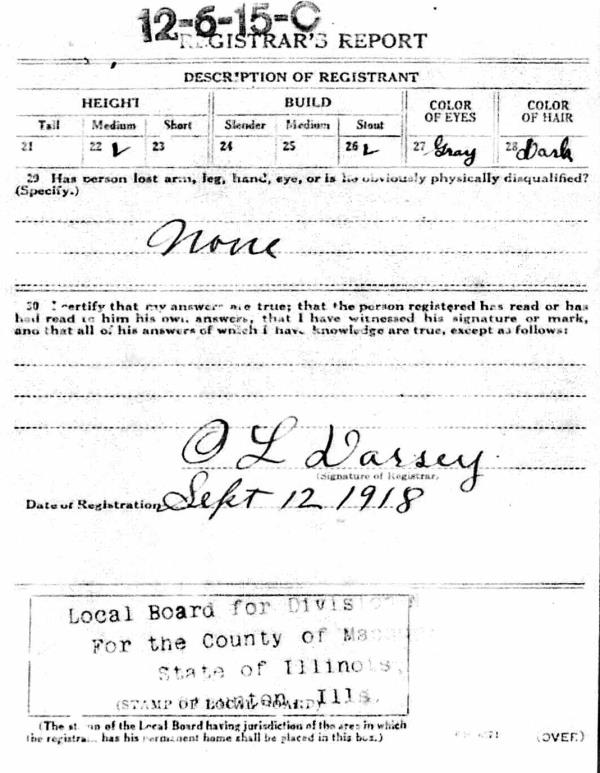 12-6-15-C
REGISTRAR'S REPORT
DESCRIPTION OF REGISTRANT
HEIGHT BUILD COLOR OF EYES COLOR OF HAIR
Tall Medium Short Slender Medium Stout
21 22 ✓ 23 24 25 26 ✓ 27 Gray 28 Dark
29 Has person lost arm, leg, hand, eye, or is he obviously physically disqualified?
(Specify.)
None
30 I certify that my answers are true; that the person registered has read or has
had read to him his own answers, that I have witnessed his signature or mark,
and that all of his answers of which I have knowledge are true, except as follows:
O L Darsey
(Signature of Registrar)
Date of Registration Sept 12 1918
Local Board for Division
For the County of
State of Illinois,
Ills.
(STAMP OF LOCAL BOARD)
(The stamp of the Local Board having jurisdiction of the area in which
the registrant has his permanent home shall be placed in this box.)
(OVER)